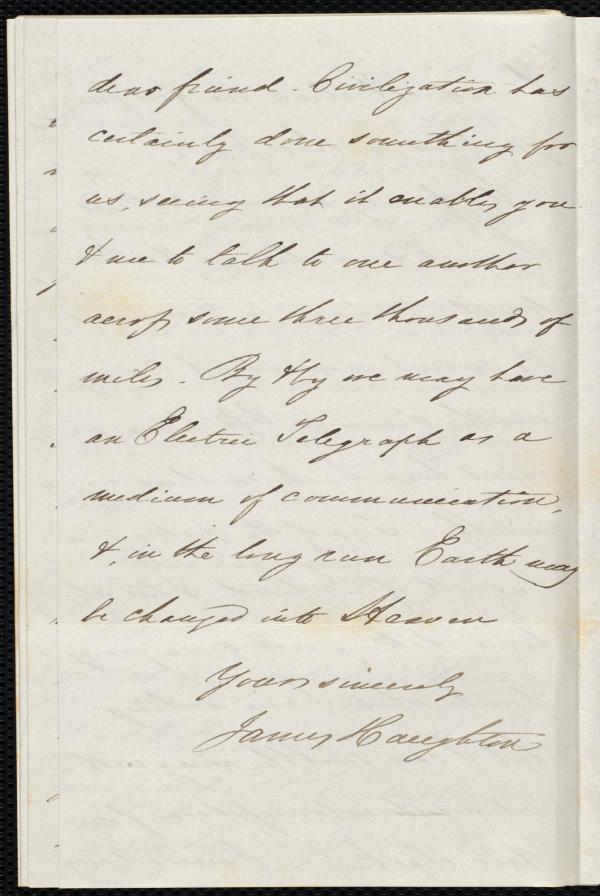 dear friend. Civilization has
certainly done something for
us, seeing that it enables you
& me to talk to one another
across some three thousands of
miles. By & by we may have
an Electric Telegraph as a
medium of communication,
&, in the long run Earth may
be changed into Heaven
Yours sincerely
James Haughton